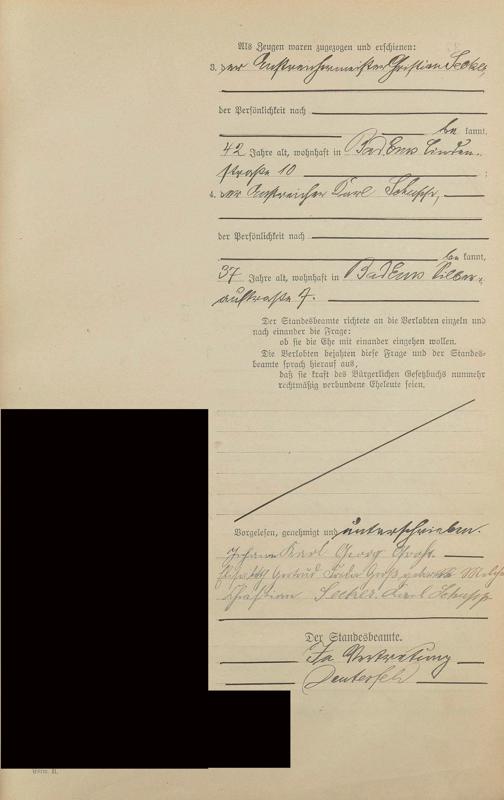 Als Zeugen waren zugezogen und erschienen:
3. der Anstreichermeister Christian Secker,
der Persönlichkeit nach
be kannt,
42 Jahre alt, wohnhaft in Bad Ems Linden-
straße 10
4. der Anstreicher Karl Schupp,
der Persönlichkeit nach
be kannt,
37 Jahre alt, wohnhaft in Bad Ems Silber-
austraße 7.
Der Standesbeamte richtete an die Verlobten einzeln und
nach einander die Frage:
ob sie die Ehe mit einander eingehen wollen.
Die Verlobten bejahten diese Frage und der Standes-
beamte sprach hierauf aus,
daß sie kraft des Bürgerlichen Gesetzbuchs nunmehr
rechtmäßig verbundene Eheleute seien.
Vorgelesen, genehmigt und unterschrieben.
Johann Karl Georg Groß.
Gertrud Groß
Christian Secker. Karl Schupp
Der Standesbeamte.
In Vertretung